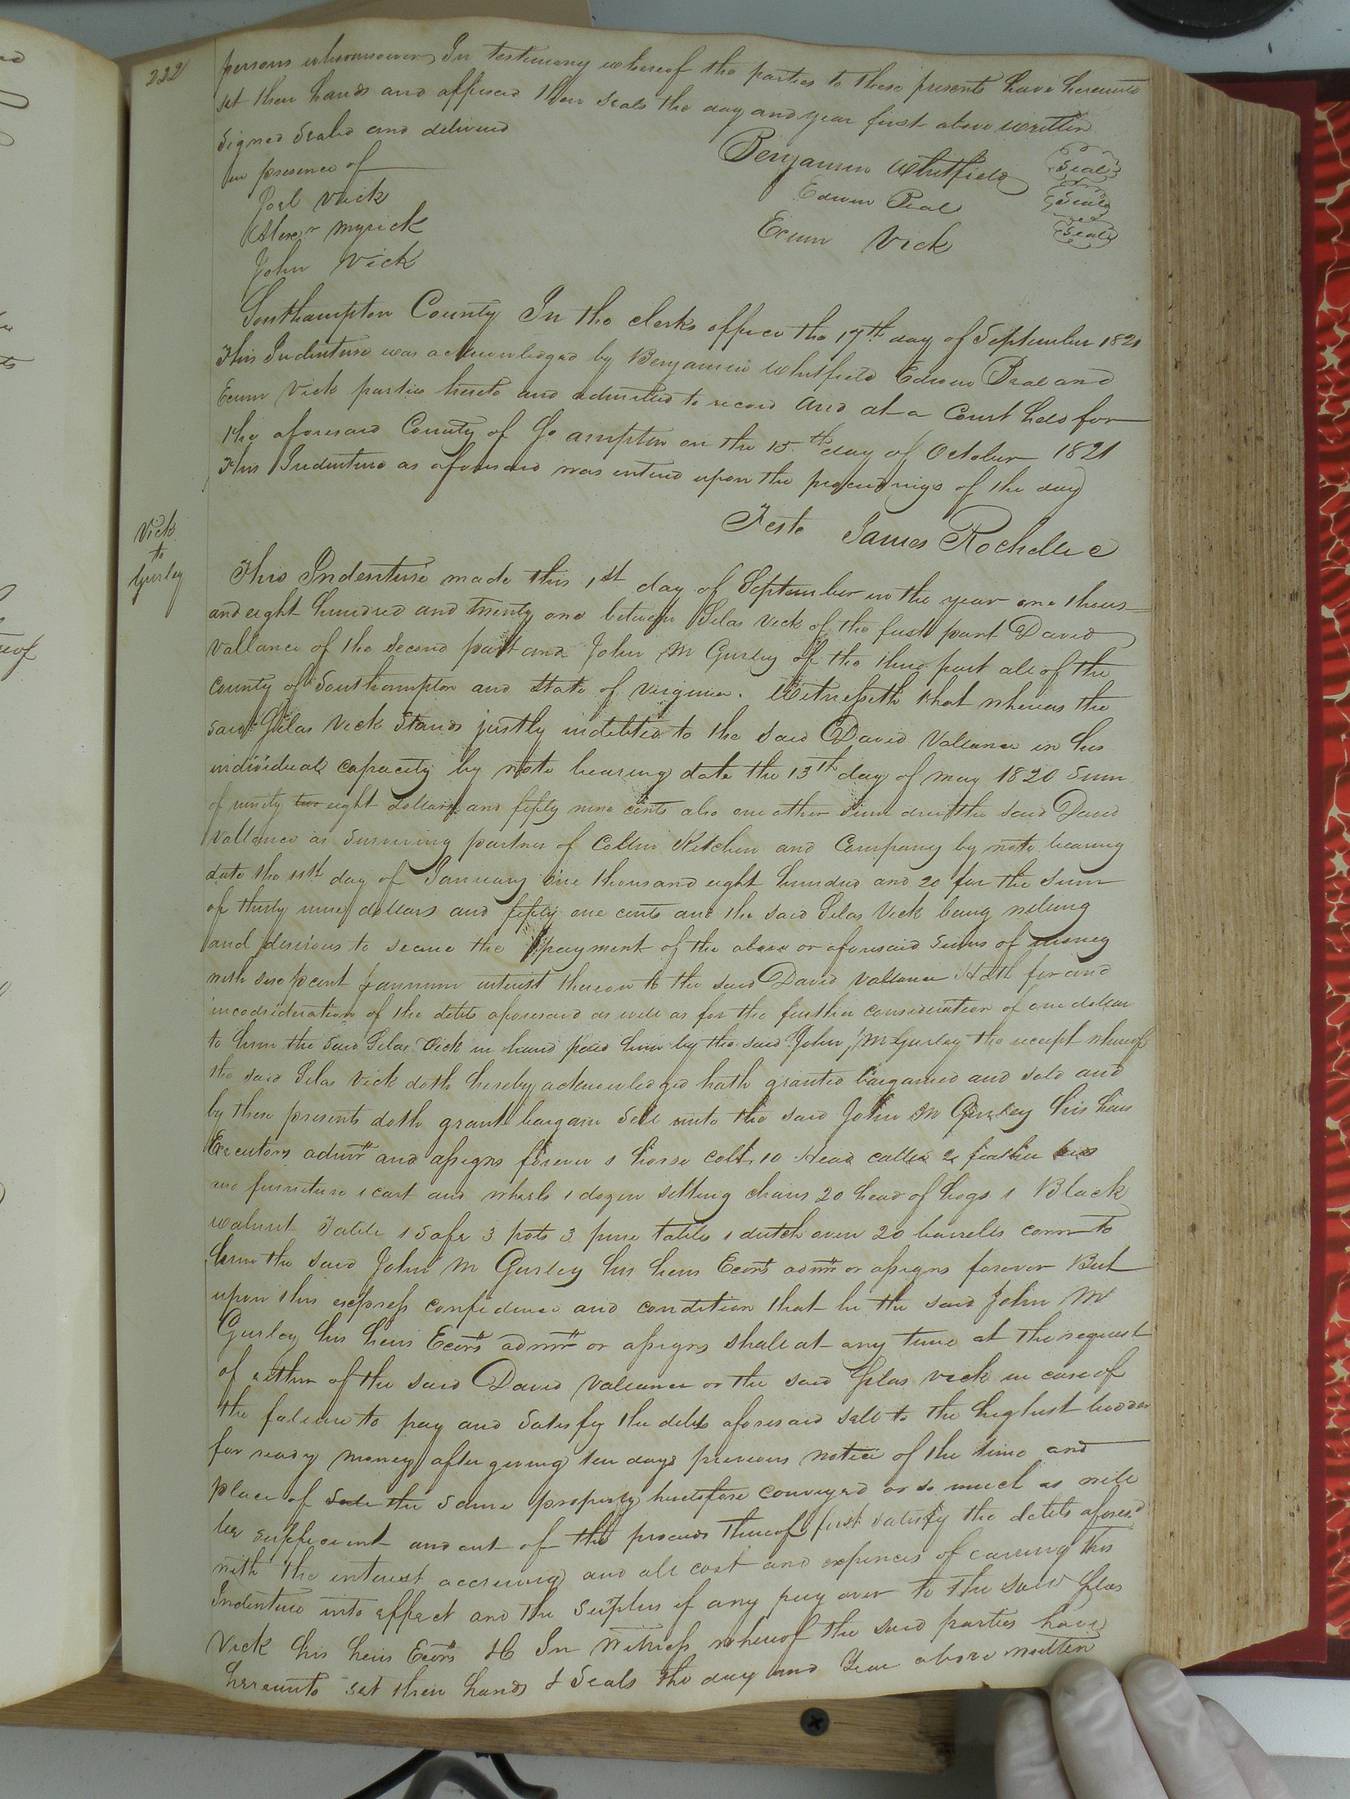 222
persons whomsoever, In testimony whereof the parties to these presents have hereunto
set their hands and affixed their seals the day and year first above written
Signed Sealed and delivered
in presence of
Benjamin Whitfield Seal
Joel Vick
Edwin Peal Seal
Myrick
Exum Vick Seal
John Vick
Southampton County In the clerks office the 17th day of September 1821
This Indenture was acknowledged by Benjamin Whitfield Edwin Peal and
Exum Vick parties hereto and admitted to record And at a Court held for
the aforesaid County of So ampton on the 15th day of October 1821
This Indenture as aforesaid was entered upon the proceedings of the day
Teste James Rochelle C
Vick
to
Gurley
This Indenture made this 1st day of September in the year one thous
and eight hundred and twenty one between Silas Vick of the first part David
Vallance of the second part and John M Gurley of the third part all of the
County of Southampton and State of Virginia. Witnesseth that whereas the
said Silas Vick stands justly indebted to the said David Vallance in his
individual capacity by note bearing date the 13th day of may 1820 Sum
of ninety two eight dollars and fifty nine cents also one other sum due the said David
Vallance as surviving partner of Collin Kitchen and Company by note bearing
date the 11th day of January one thousand eight hundred and 20 for the sum
of thirty nine dollars and fifty one cents and the said Silas Vick being willing
and desirous to secure the payment of the above or aforesaid sums of money
with six pcent annum interest thereon to the said David Vallance Hath for and
inconsideration of the debts aforesaid as well as for the further consideration of one dollar
to him the said Silas Vick in hand paid him by the said John M Gurley the receipt whereof
the said Silas Vick doth hereby acknowledged hath granted bargained and sold and
by these presents doth grant bargain sell unto the said John M Gurley his heirs
Executors admrs and assigns forever 1 horse colt 10 Head cattle 2 feather beds
and furniture 1 cart and wheels 1 dozen setting chairs 20 head of hogs 1 Black
walnut Table 1 Safe 3 pots 3 pine tables 1 dutch oven 20 barrells corn to
him the said John M Gurley his heirs Ecors admrs or assigns forever But
upon this express confidence and condition that he the said John M
Gurley his heirs Ecors admrs or assigns shall at any time at the request
of either of the said David Vallance or the said Silas Vick in case of
the failure to pay and satisfy the debts aforesaid sell to the highest bidder
for ready money after giving ten days previous notice of the time and
place of Sale the same property heretofore conveyed or so much as will
be sufficient and out of the proceeds thereof first satisfy the debts aforesd
with the interest accrueing and all cost and expences of carrying this
Indenture into effect and the surplus if any pay over to the said Silas
Vick his heirs Ecors &C In Witness whereof the said parties have
hereunto set their hands & Seals the day and Year above written